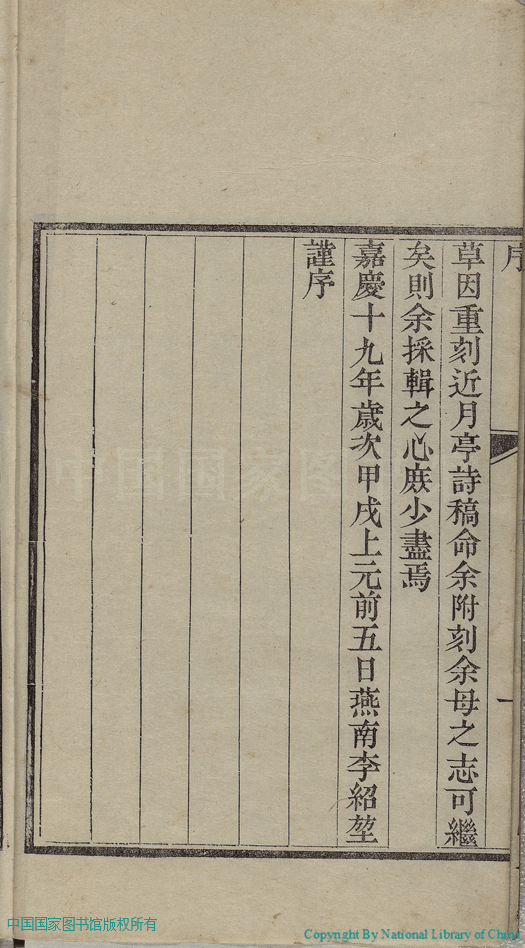 序
一
草因重刻近月亭詩稿命余附刻余母之志可繼
矣則余採輯之心庶少盡焉
嘉慶十九年歲次甲戌上元前五日燕南李紹堃
謹序
中国国家图书馆版权所有
Copyright By National Library of China